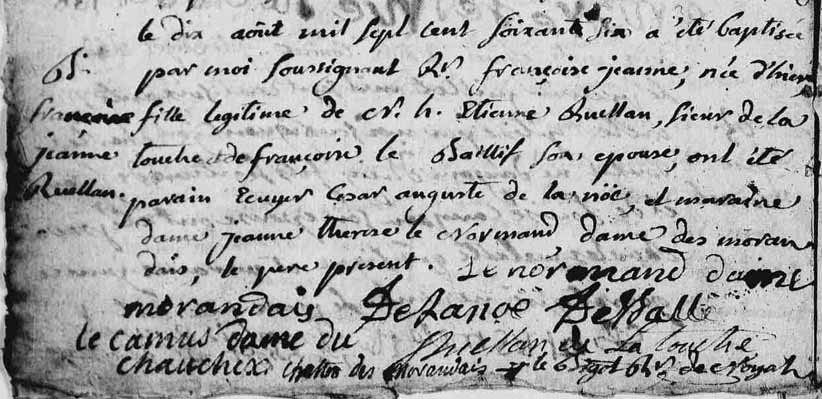 le dix août mil sept cent soixante six a été baptisée
B.
par moi soussignant françoise jeanne, née d'hier,
françoise
fille legitime de n. h. Etienne Ruellan, sieur de la
jeanne
touche et de françoise le Baillif son epouse, ont été
Ruellan.
parain Ecuyer Cesar auguste de la noë, et maraine
dame jeanne therese le Normand dame des moran
dais, le pere present. Le normand dame
morandais De Lanoë
le camus dame du Ruellan de La touche
chauchix des morandais le Bigot de